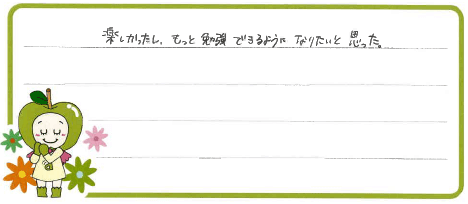 楽しかったし、もっと勉強できるようになりたいと思った。